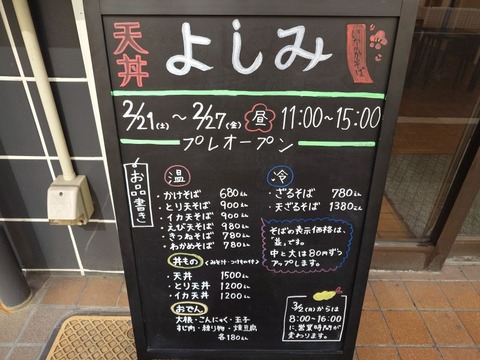 天丼
よしみ
2/21(土)～2/27(金) 昼 11:00～15:00
プレオープン
お品書き
温
・かけそば 680えん
・とり天そば 900えん
・イカ天そば 900えん
・えび天そば 980えん
・きつねそば 780えん
・わかめそば 780えん
丼もの
・天丼 1500えん
・とり天丼 1200えん
・イカ天丼 1200えん
おでん
大根・こんにゃく・玉子
すじ肉・練り物・焼豆腐
各180えん
冷
・ざるそば 780えん
・天ざるそば 1380えん
そばの表示価格は、
「並」です。
中と大は80円ずつ
アップします。
3/2(月)からは
8:00～16:00
に営業時間が
変わります。